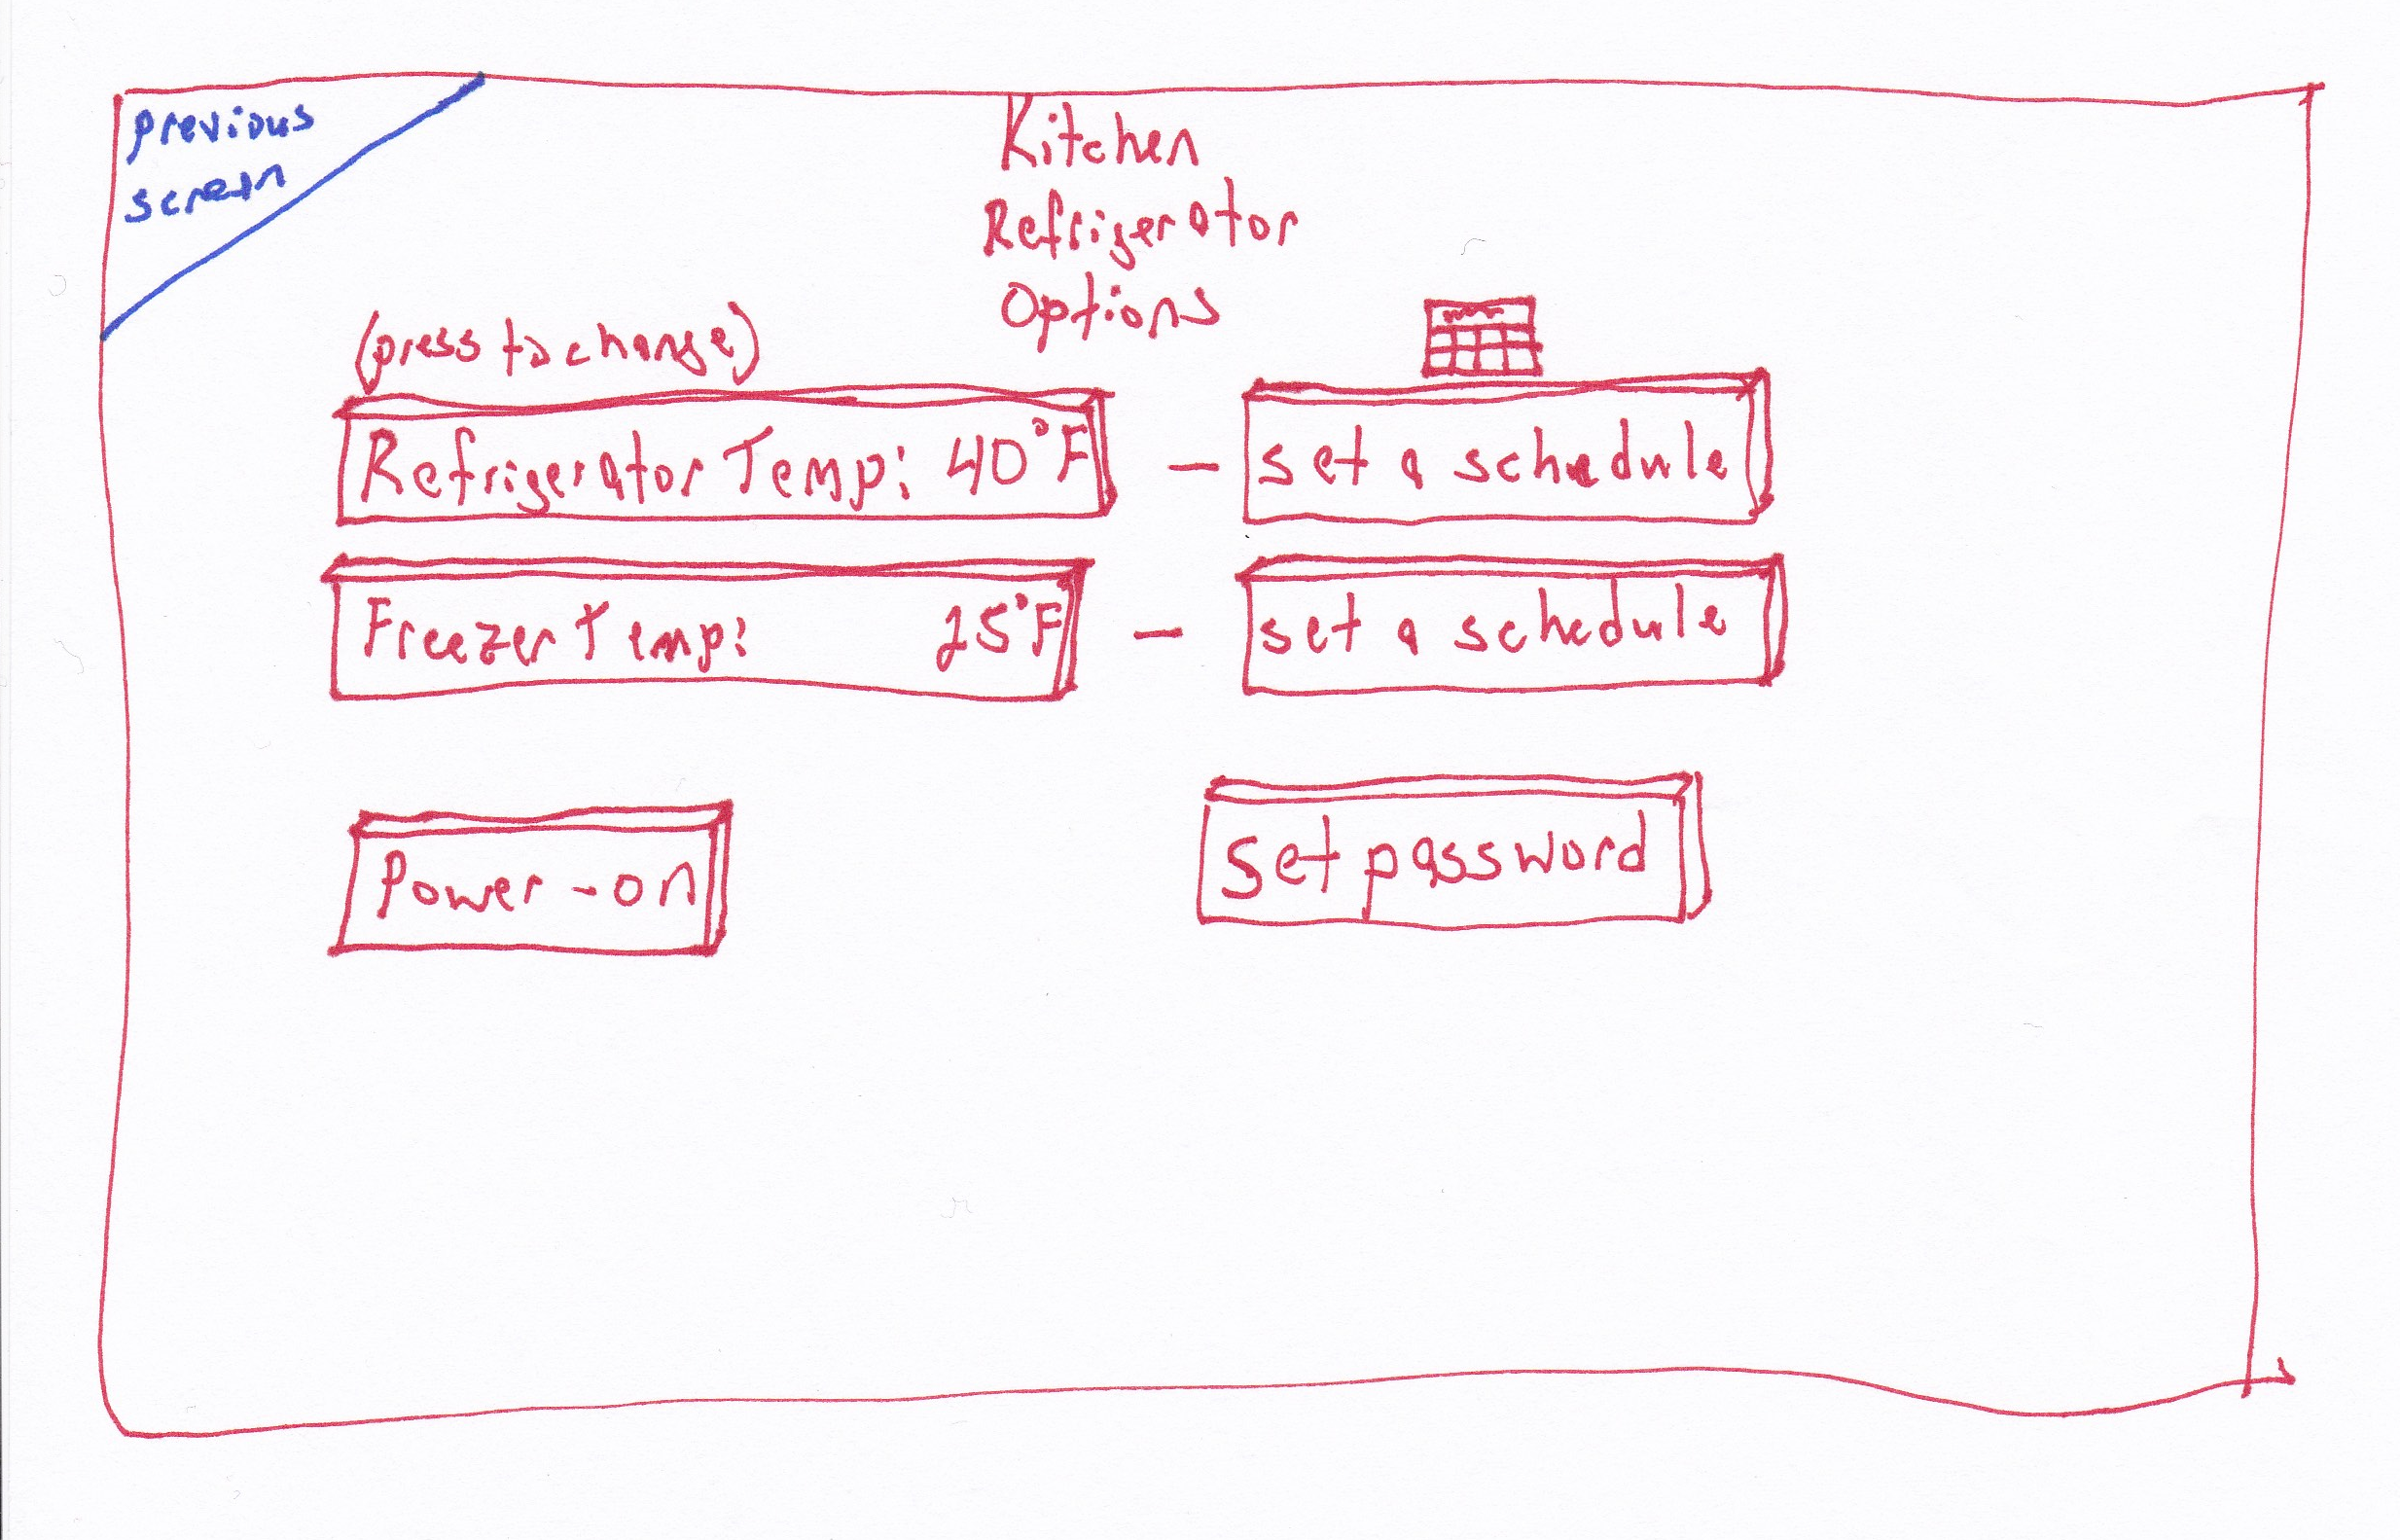 previous
screen
Kitchen
Refrigerator
Options
(press to change)
Refrigerator Temp: 40°F - set a schedule
Freezer Temp: 25°F - set a schedule
Power - on
set password